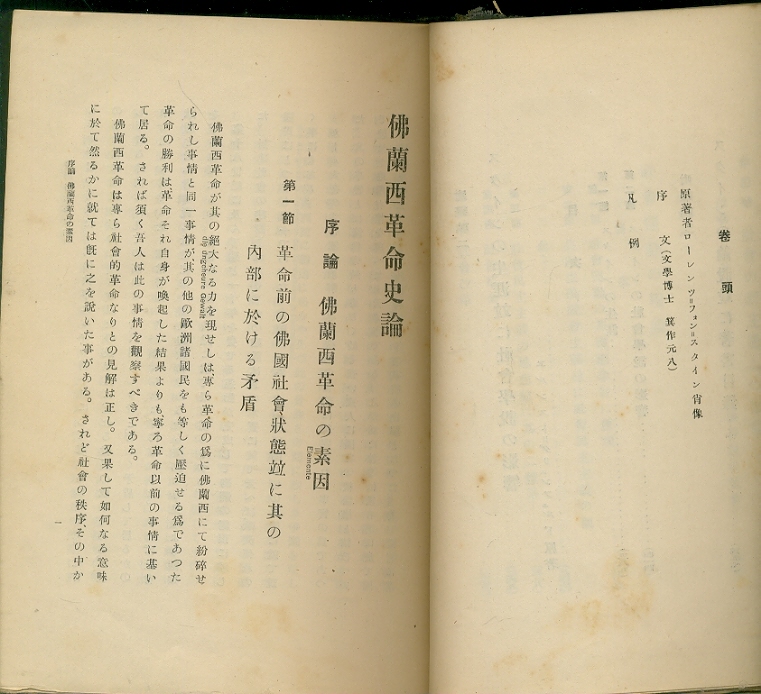 卷頭
原著者ローレンツ=フォン=スタイン肖像
序文(文學博士 箕作元八)
凡例
佛蘭西革命史論
序論 佛蘭西革命の素因
Elemente
第一節 革命前の佛國社會狀態竝に其の
內部に於ける矛盾
佛蘭西革命が其の絕大なる力を現せしは、專ら革命の爲に佛蘭西にて紛碎せ
die ungeheure Gewalt
られし事情と同一事情が、其の他の歐洲諸國民をも等しく壓迫せる爲であつた
革命の勝利は、革命それ自身が喚起した結果よりも寧ろ革命以前の事情に基い
て居る。されば須く吾人は此の事情を觀察すべきである。
佛蘭西革命は專ら社會的革命なりとの見解は正し。又果して如何なる意味
に於て然るかに就ては旣に之を說いた事がある。されど社會の秩序、その中か
序論 佛蘭西革命の素因
一